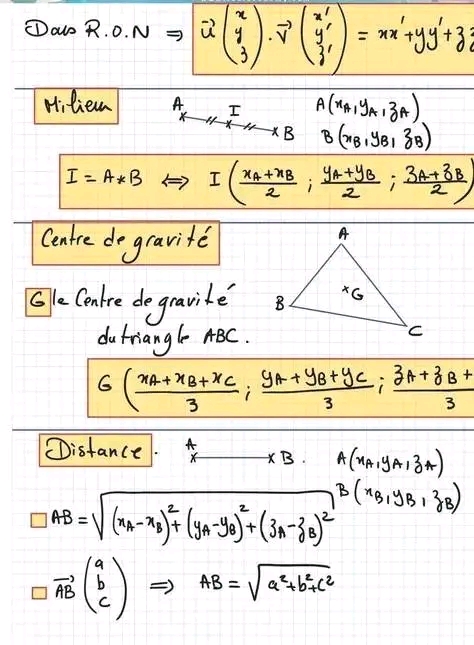 Dans R.O.N ⇒ u⃗ (x y z) . v⃗ (x' y' z') = xx'+yy'+z
Milieu
A I B
A(xA, yA, zA)
B(xB, yB, zB)
I = A*B ⇔ I ( (xA+xB)/2 ; (yA+yB)/2 ; (zA+zB)/2 )
Centre de gravité
A
B
C
G
G le Centre de gravité
du triangle ABC.
G ( (xA+xB+xC)/3 ; (yA+yB+yC)/3 ; (zA+zB+)/3
Distance.
A B.
A(xA, yA, zA)
B(xB, yB, zB)
AB = √((xA-xB)²+(yA-yB)²+(zA-zB)²)
AB⃗ (a b c) ⇒ AB = √(a²+b²+c²)